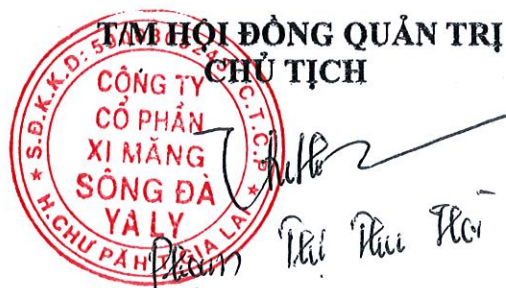 T/M HỘI ĐỒNG QUẢN TRỊ
CHỦ TỊCH
S.Đ.K.K.D: C.T.C.P
CÔNG TY
CỔ PHẦN
XI MĂNG
SÔNG ĐÀ
YALY
H.CHƯ PĂH T.GIA LAI
Phạm Thị Thu